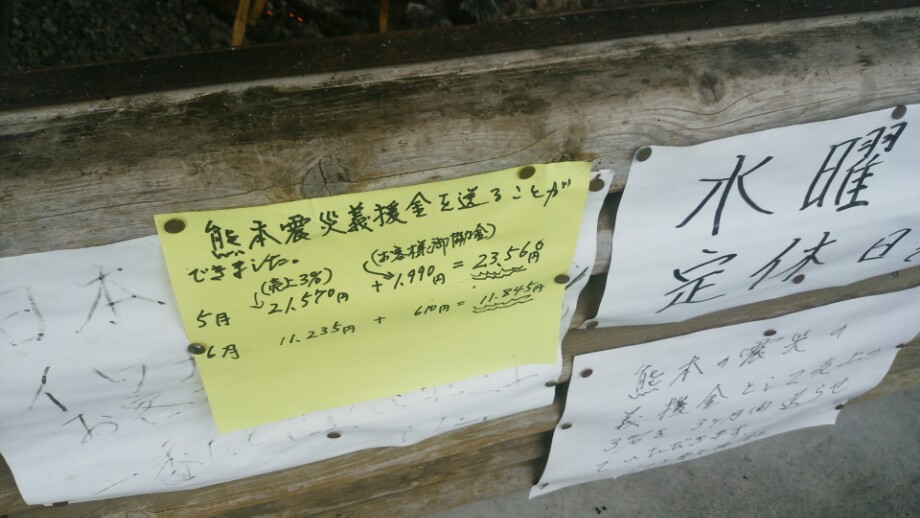 熊本震災義援金を送ることが
できました。
(売上3%) (お客様御協力金)
5月 21.570円 + 1.990円 = 23.560円
6月 11.235円 + 610円 = 11.845円
水曜
定休日
日本
熊本の震災の
義援金として売上の
3%を3ヶ月間送らせ
ていただきます